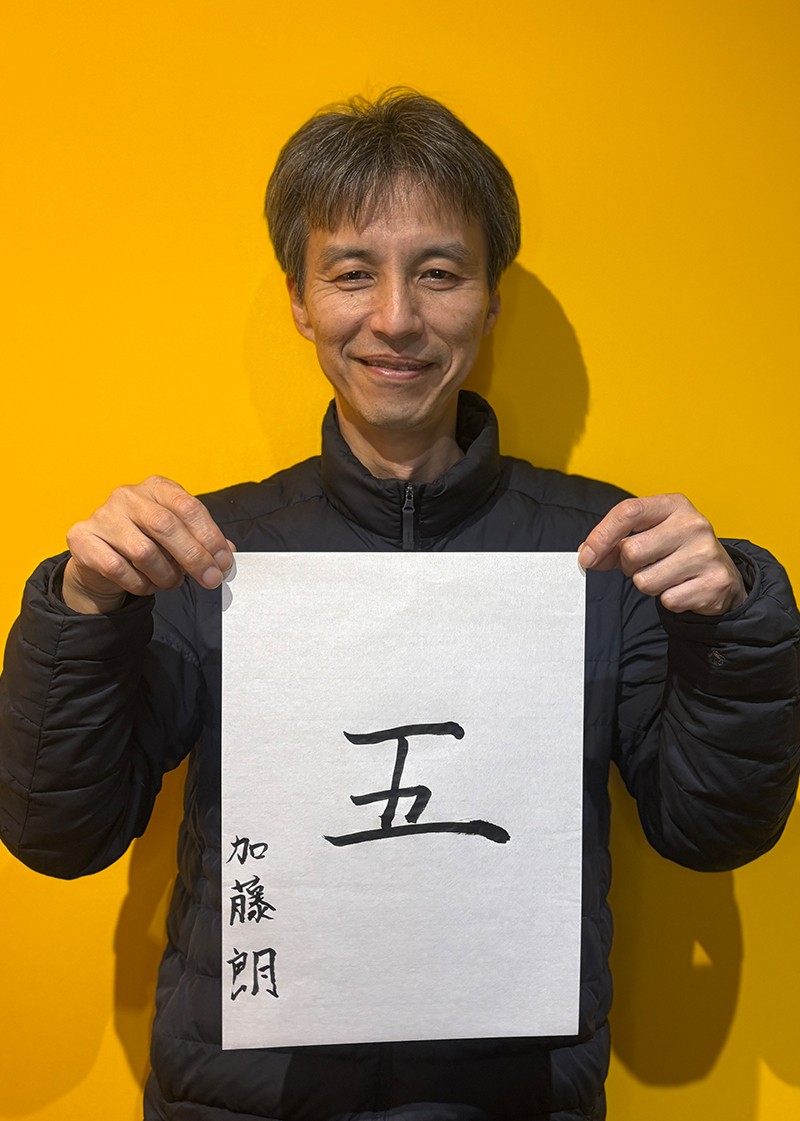 五
加藤朗